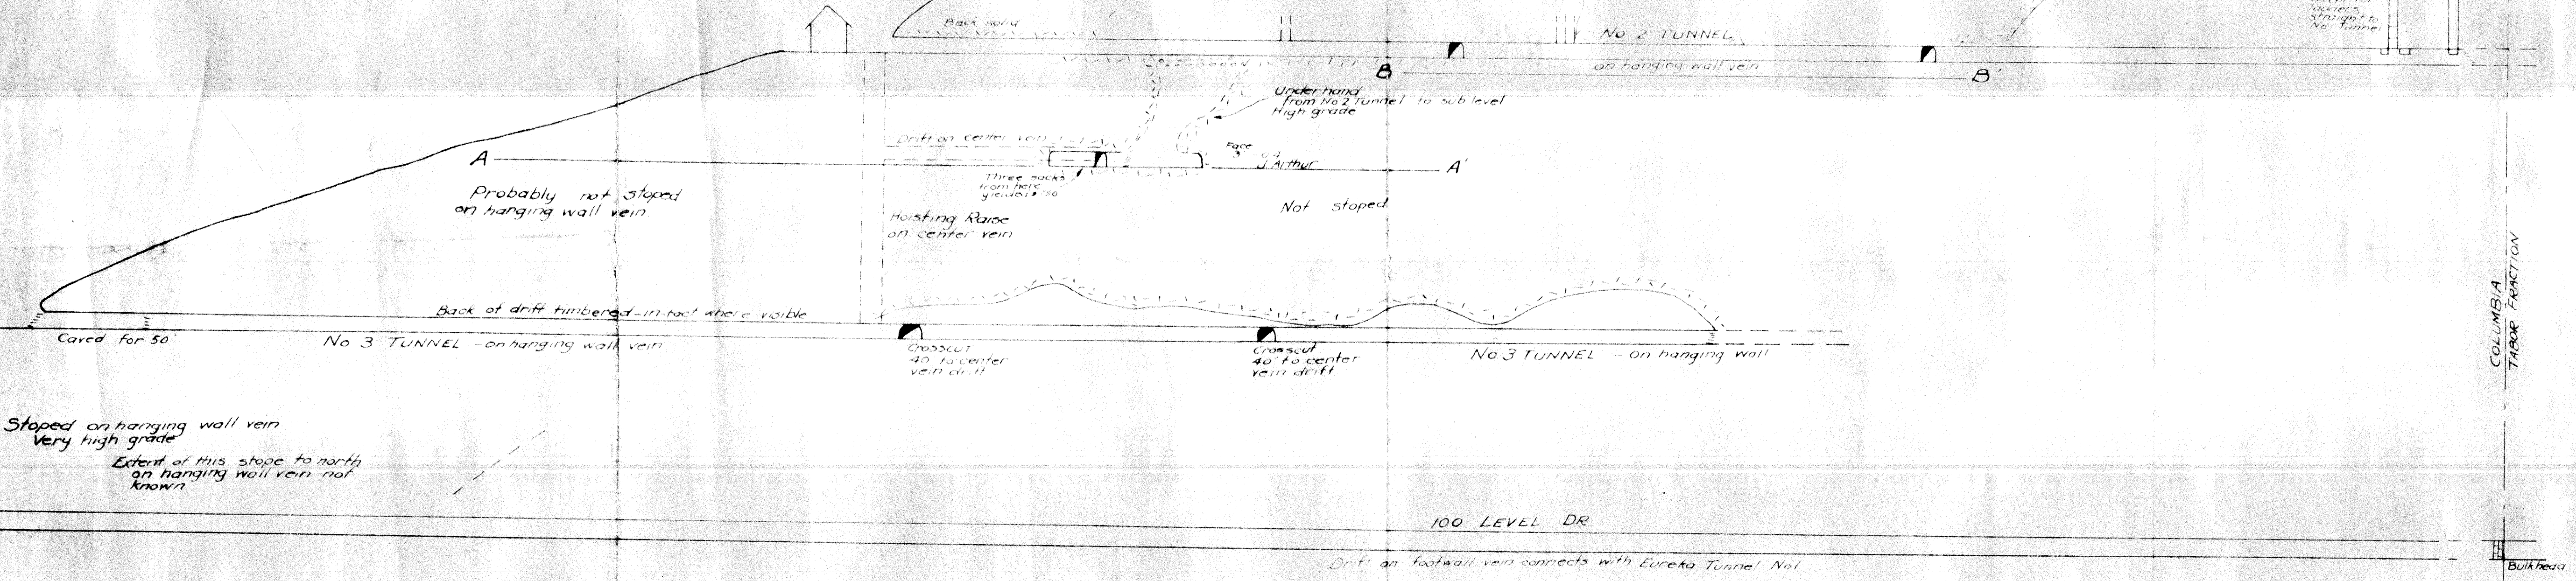 Back solid
No 2 TUNNEL
on hanging wall vein
ladders,
straight to
No 1 Tunnel
B
B'
Underhand
from No 2 Tunnel to sub level
High grade
Drift on center vein
A
Face
3'
J. Arthur
A'
Three sacks
from here
yielded $150
Probably not stoped
on hanging wall vein
Not stoped
Hoisting Raise
on center vein
COLUMBIA
TABOR FRACTION
Back of drift timbered-in-tact where visible
Caved for 50'
No 3 TUNNEL - on hanging wall vein
Crosscut
40' to center
vein drift
Crosscut
40' to center
vein drift
No 3 TUNNEL - on hanging wall
Stoped on hanging wall vein
Very high grade
Extent of this stope to north
on hanging wall vein not
known
100 LEVEL DR
Drift on footwall vein connects with Eureka Tunnel No 1
Bulkhead